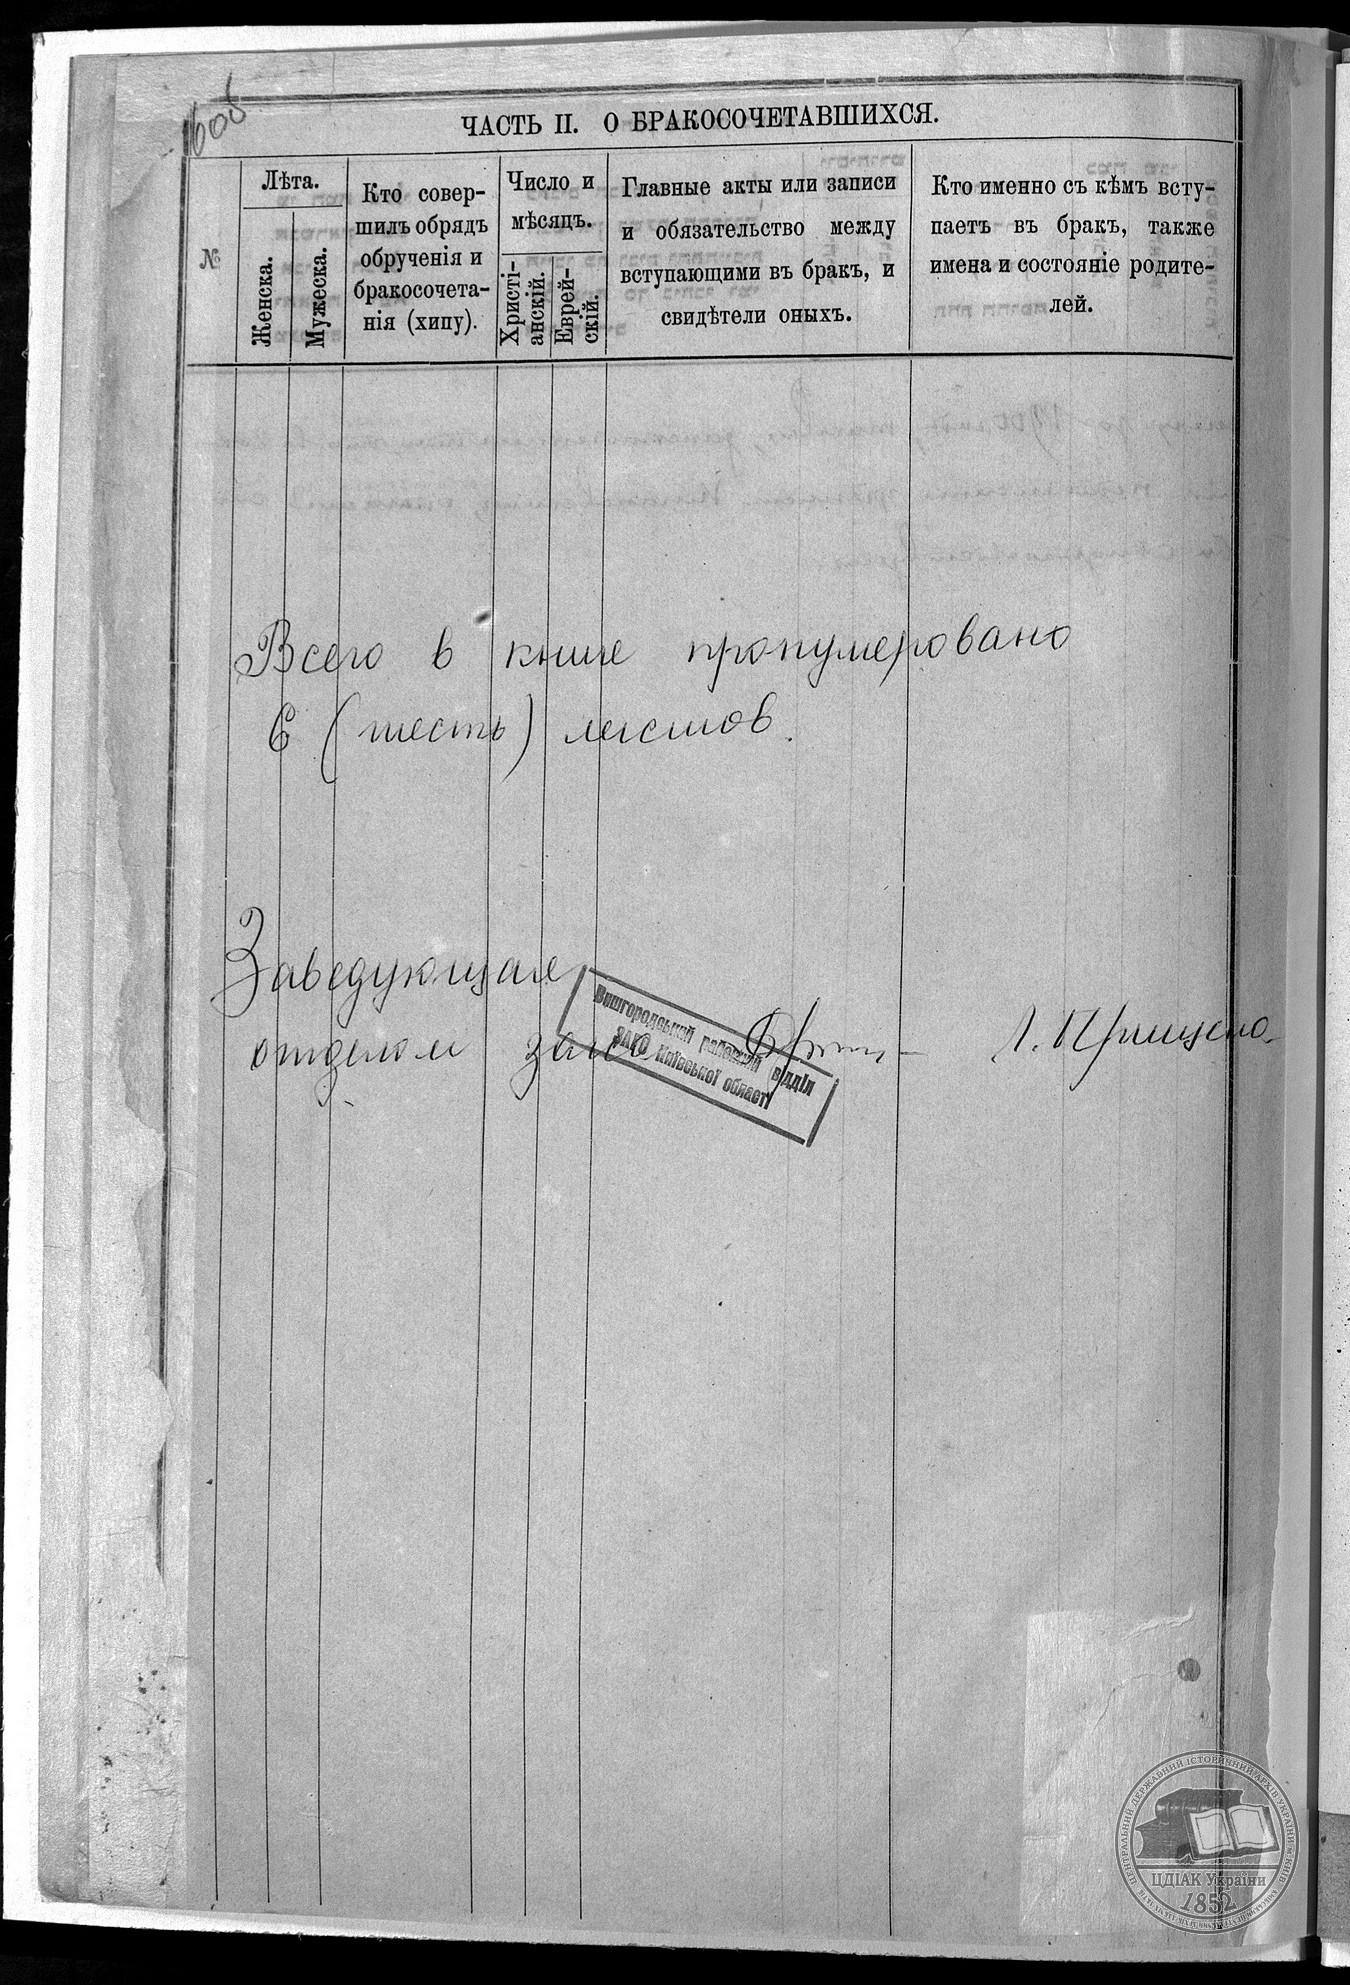 ЧАСТЬ II. О БРАКОСОЧЕТАВШИХСЯ.
№
Лѣта.
Женска.
Мужеска.
Кто совер-
шилъ обрядъ
обрученія и
бракосочета-
нія (хипу).
Число и
мѣсяцъ.
Христі-
анскій.
Еврей-
скій.
Главные акты или записи
и обязательство между
вступающими въ брак, и
свидѣтели оныхъ.
Кто именно съ кѣмъ всту-
паетъ въ брак, также
имена и состояніе родите-
лей.
Всего в книге пронумеровано
6 (шесть) листов.
Заведующая
отделом загс
Л. Прищепа
Вишгородський районний відділ
ЗАГС Київської області
ЦЕНТРАЛЬНИЙ ДЕРЖАВНИЙ ІСТОРИЧНИЙ АРХІВ УКРАЇНИ М.КИЇВ
ЦДІАК України
1852